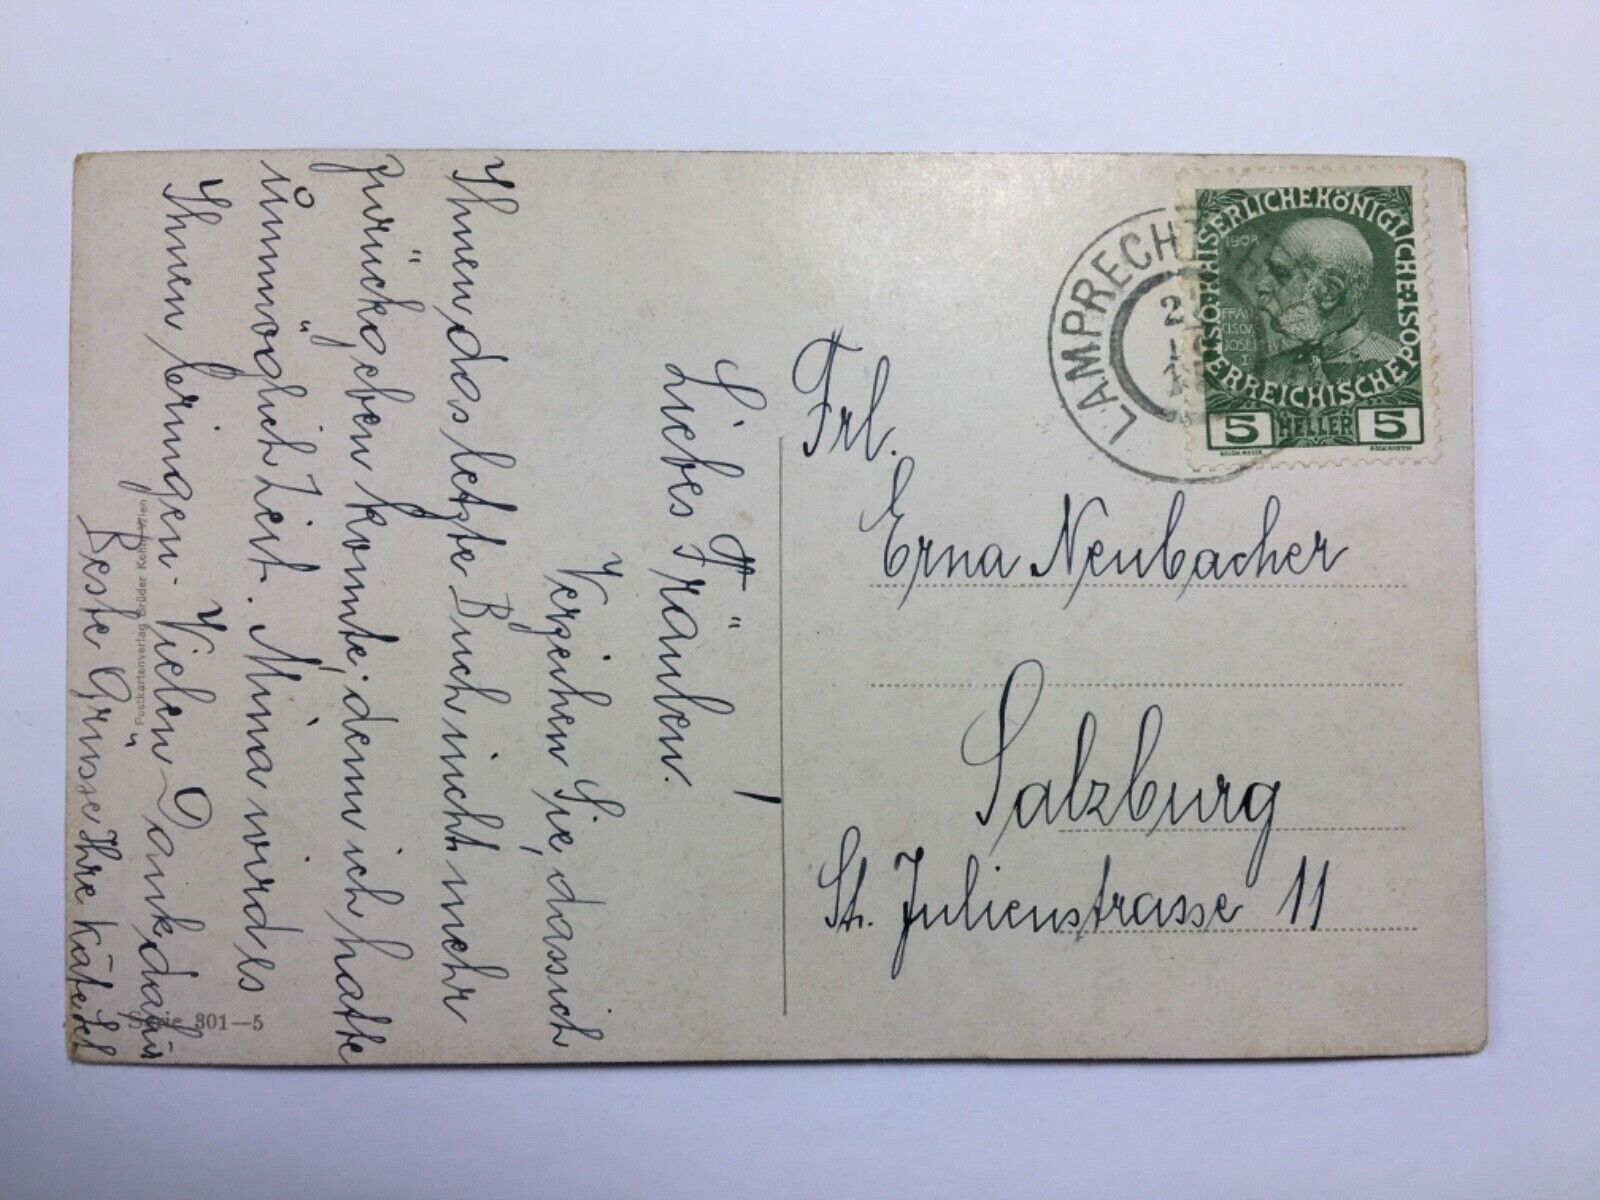 Liebes Fräulen!
Verzeihen Sie, dass ich
Ihnen das letzte Buch nicht mehr
zurückgeben konnte, denn ich hatte
unmöglich Zeit. Mina wird es
Ihnen bringen. Vielen Dank dafür
Beste Grüsse Ihre Käte
Postkartenverlag Brüder Kohn, Wien
Serie 301—5
Frl.
Erna Neubacher
Salzburg
St. Julienstrasse 11
LAMPRECHT
KAISERLICHE KÖNIGLICHE
ÖSTERREICHISCHE POST
1908
FRAN
CISCVS
JOSEPH
I.
5 HELLER 5